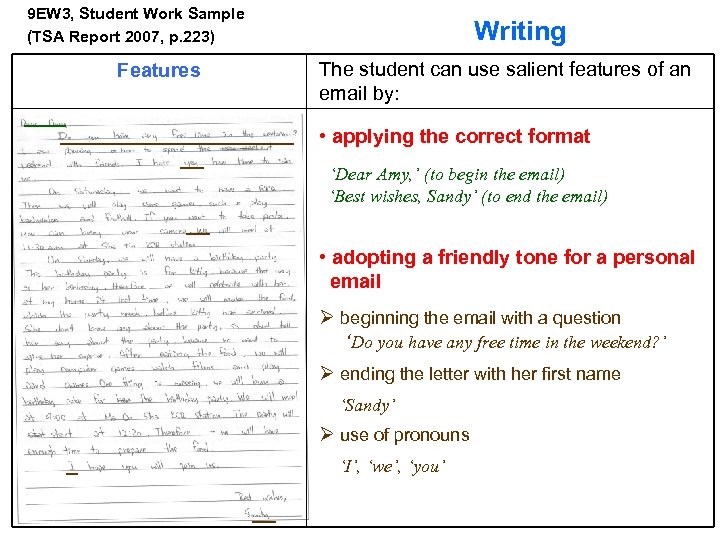 9EW3, Student Work Sample
(TSA Report 2007, p.223)
Writing
Features
The student can use salient features of an
email by:
• applying the correct format
‘Dear Amy,’ (to begin the email)
‘Best wishes, Sandy’ (to end the email)
• adopting a friendly tone for a personal
email
Ø beginning the email with a question
‘Do you have any free time in the weekend?’
Ø ending the letter with her first name
‘Sandy’
Ø use of pronouns
‘I’, ‘we’, ‘you’
Dear Amy,
Do you have any free time in the weekend?
I am planning to spend this
weekend with friends. I hope you have time to join
us.
On Saturday, we want to have a BBQ.
Then we will play some games, such as play
badminton and football. If you want to take photos,
You can bring your camera. We will meet at
11:30 a.m. at She Tin KCR station.
On Sunday, we will have a birthday party.
This birthday party is for Kitty because that day
is her birthday, therefore we will celebrate with her
at my house. At that time, we will make the food,
which the party needs before Kitty has arrived.
She don't know any about the party, so don't tell
her any about the party because we want to
give her suprise. After eating the food, we will
play computer games, watch films and play
card games. One thing is missing, we will buy a
birthday cake for the birthday party. We will meet
at at Ma On Sha KCR Station. The party will
start at 12:30. Therefore, we will have
enough time to prepare the food.
I hope you will join us.
Best wishes,
Sandy